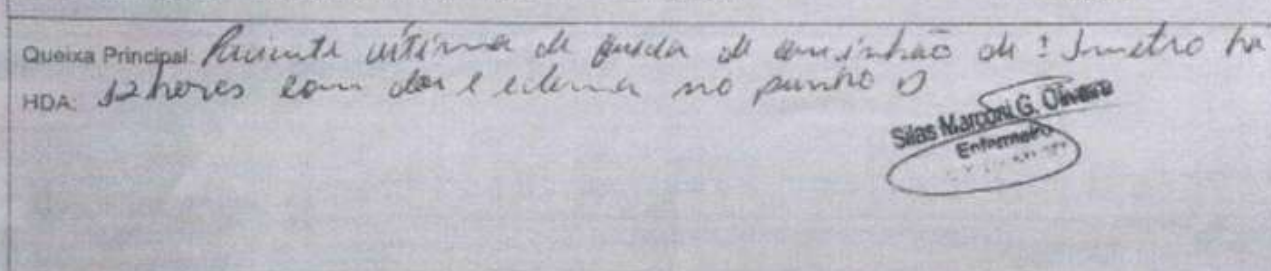 Queixa Principal: Paciente vítima de queda de caminhão de ± 1 metro há
HDA: 12 horas com dor e edema no punho D
Silas Marconi G. Oliveira
Enfermeiro